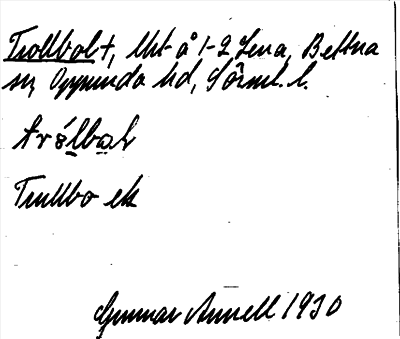 Trollbolt, lht å 1-2 Lena, Bettna
sn, Oppunda hd, Sörml. l.
Trullbo ek
Gunnar Annell 1930